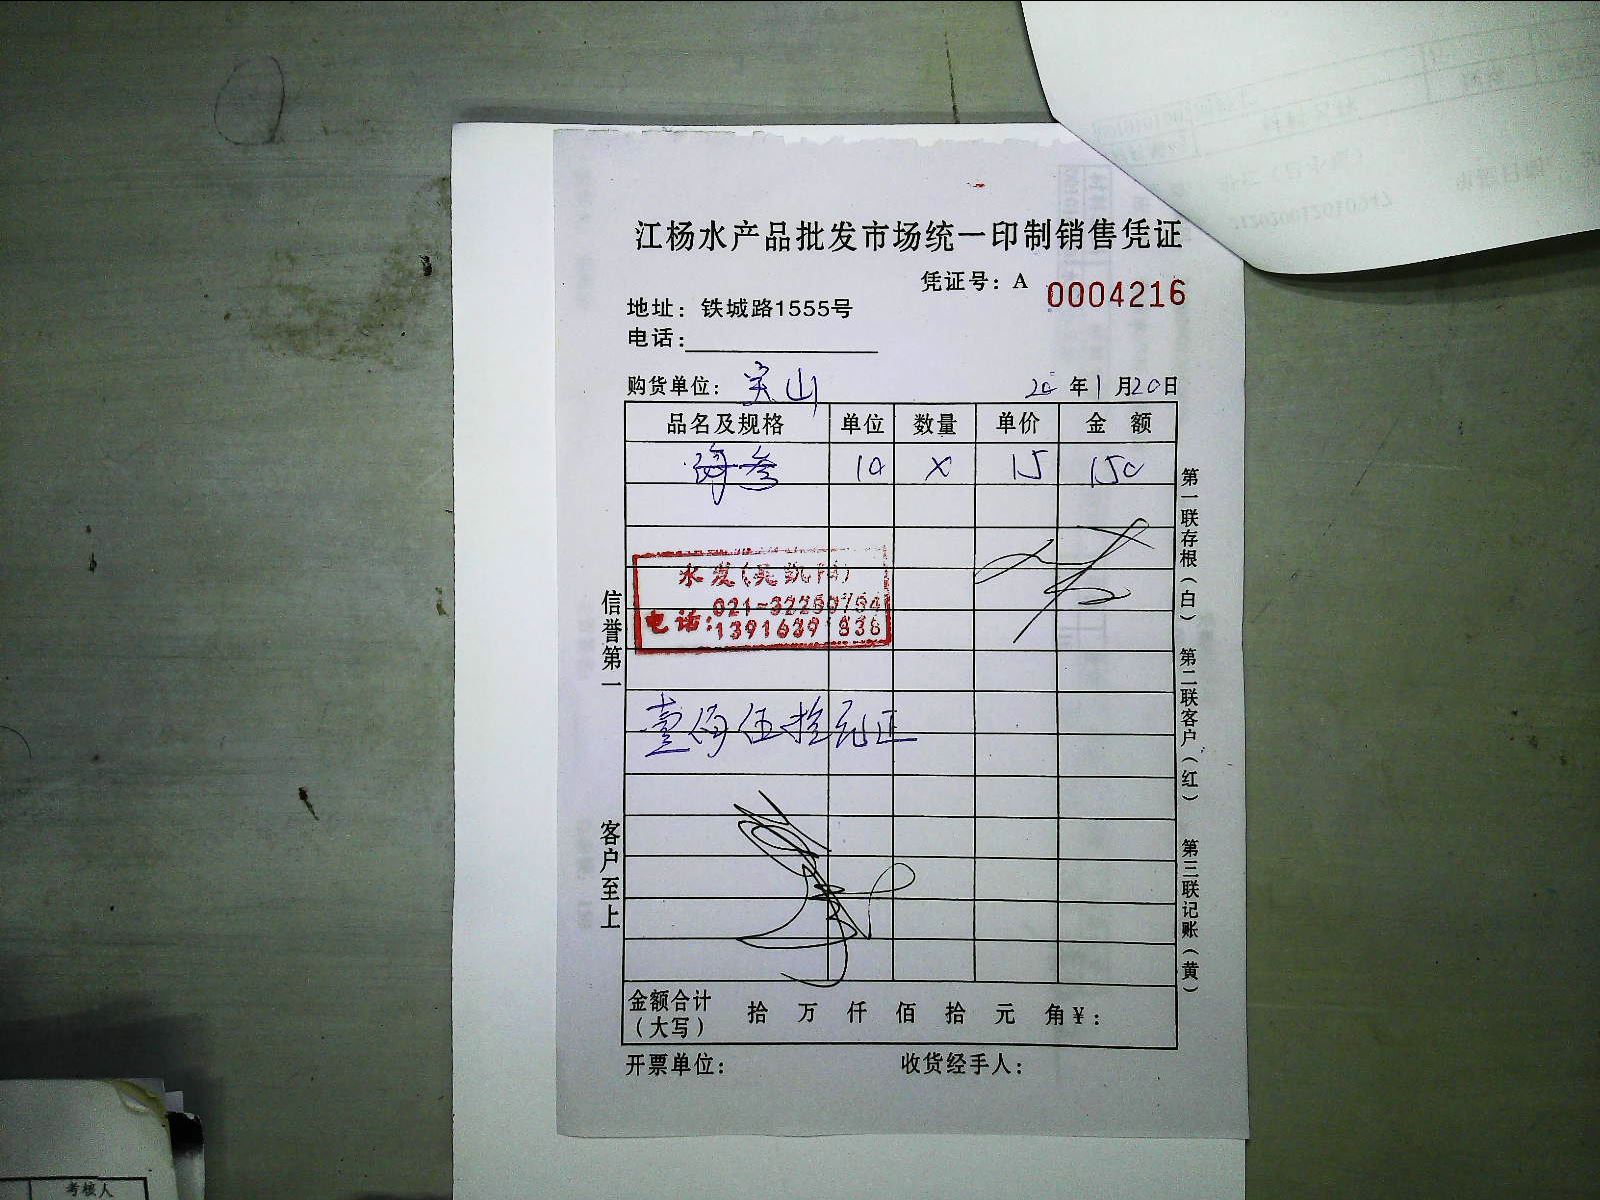 江杨水产品批发市场统一印制销售凭证
凭证号：A 0004216
地址：铁城路1555号
电话：
购货单位：宝山 20年1月20日
品名及规格 单位 数量 单价 金 额
海参 10 × 15 150
水发
电话：021-32250754
壹佰伍拾元正
金额合计（大写） 拾 万 仟 佰 拾 元 角￥：
开票单位： 收货经手人：
信誉第一 客户至上
第一联存根（白） 第二联客户（红） 第三联记账（黄）
考核人